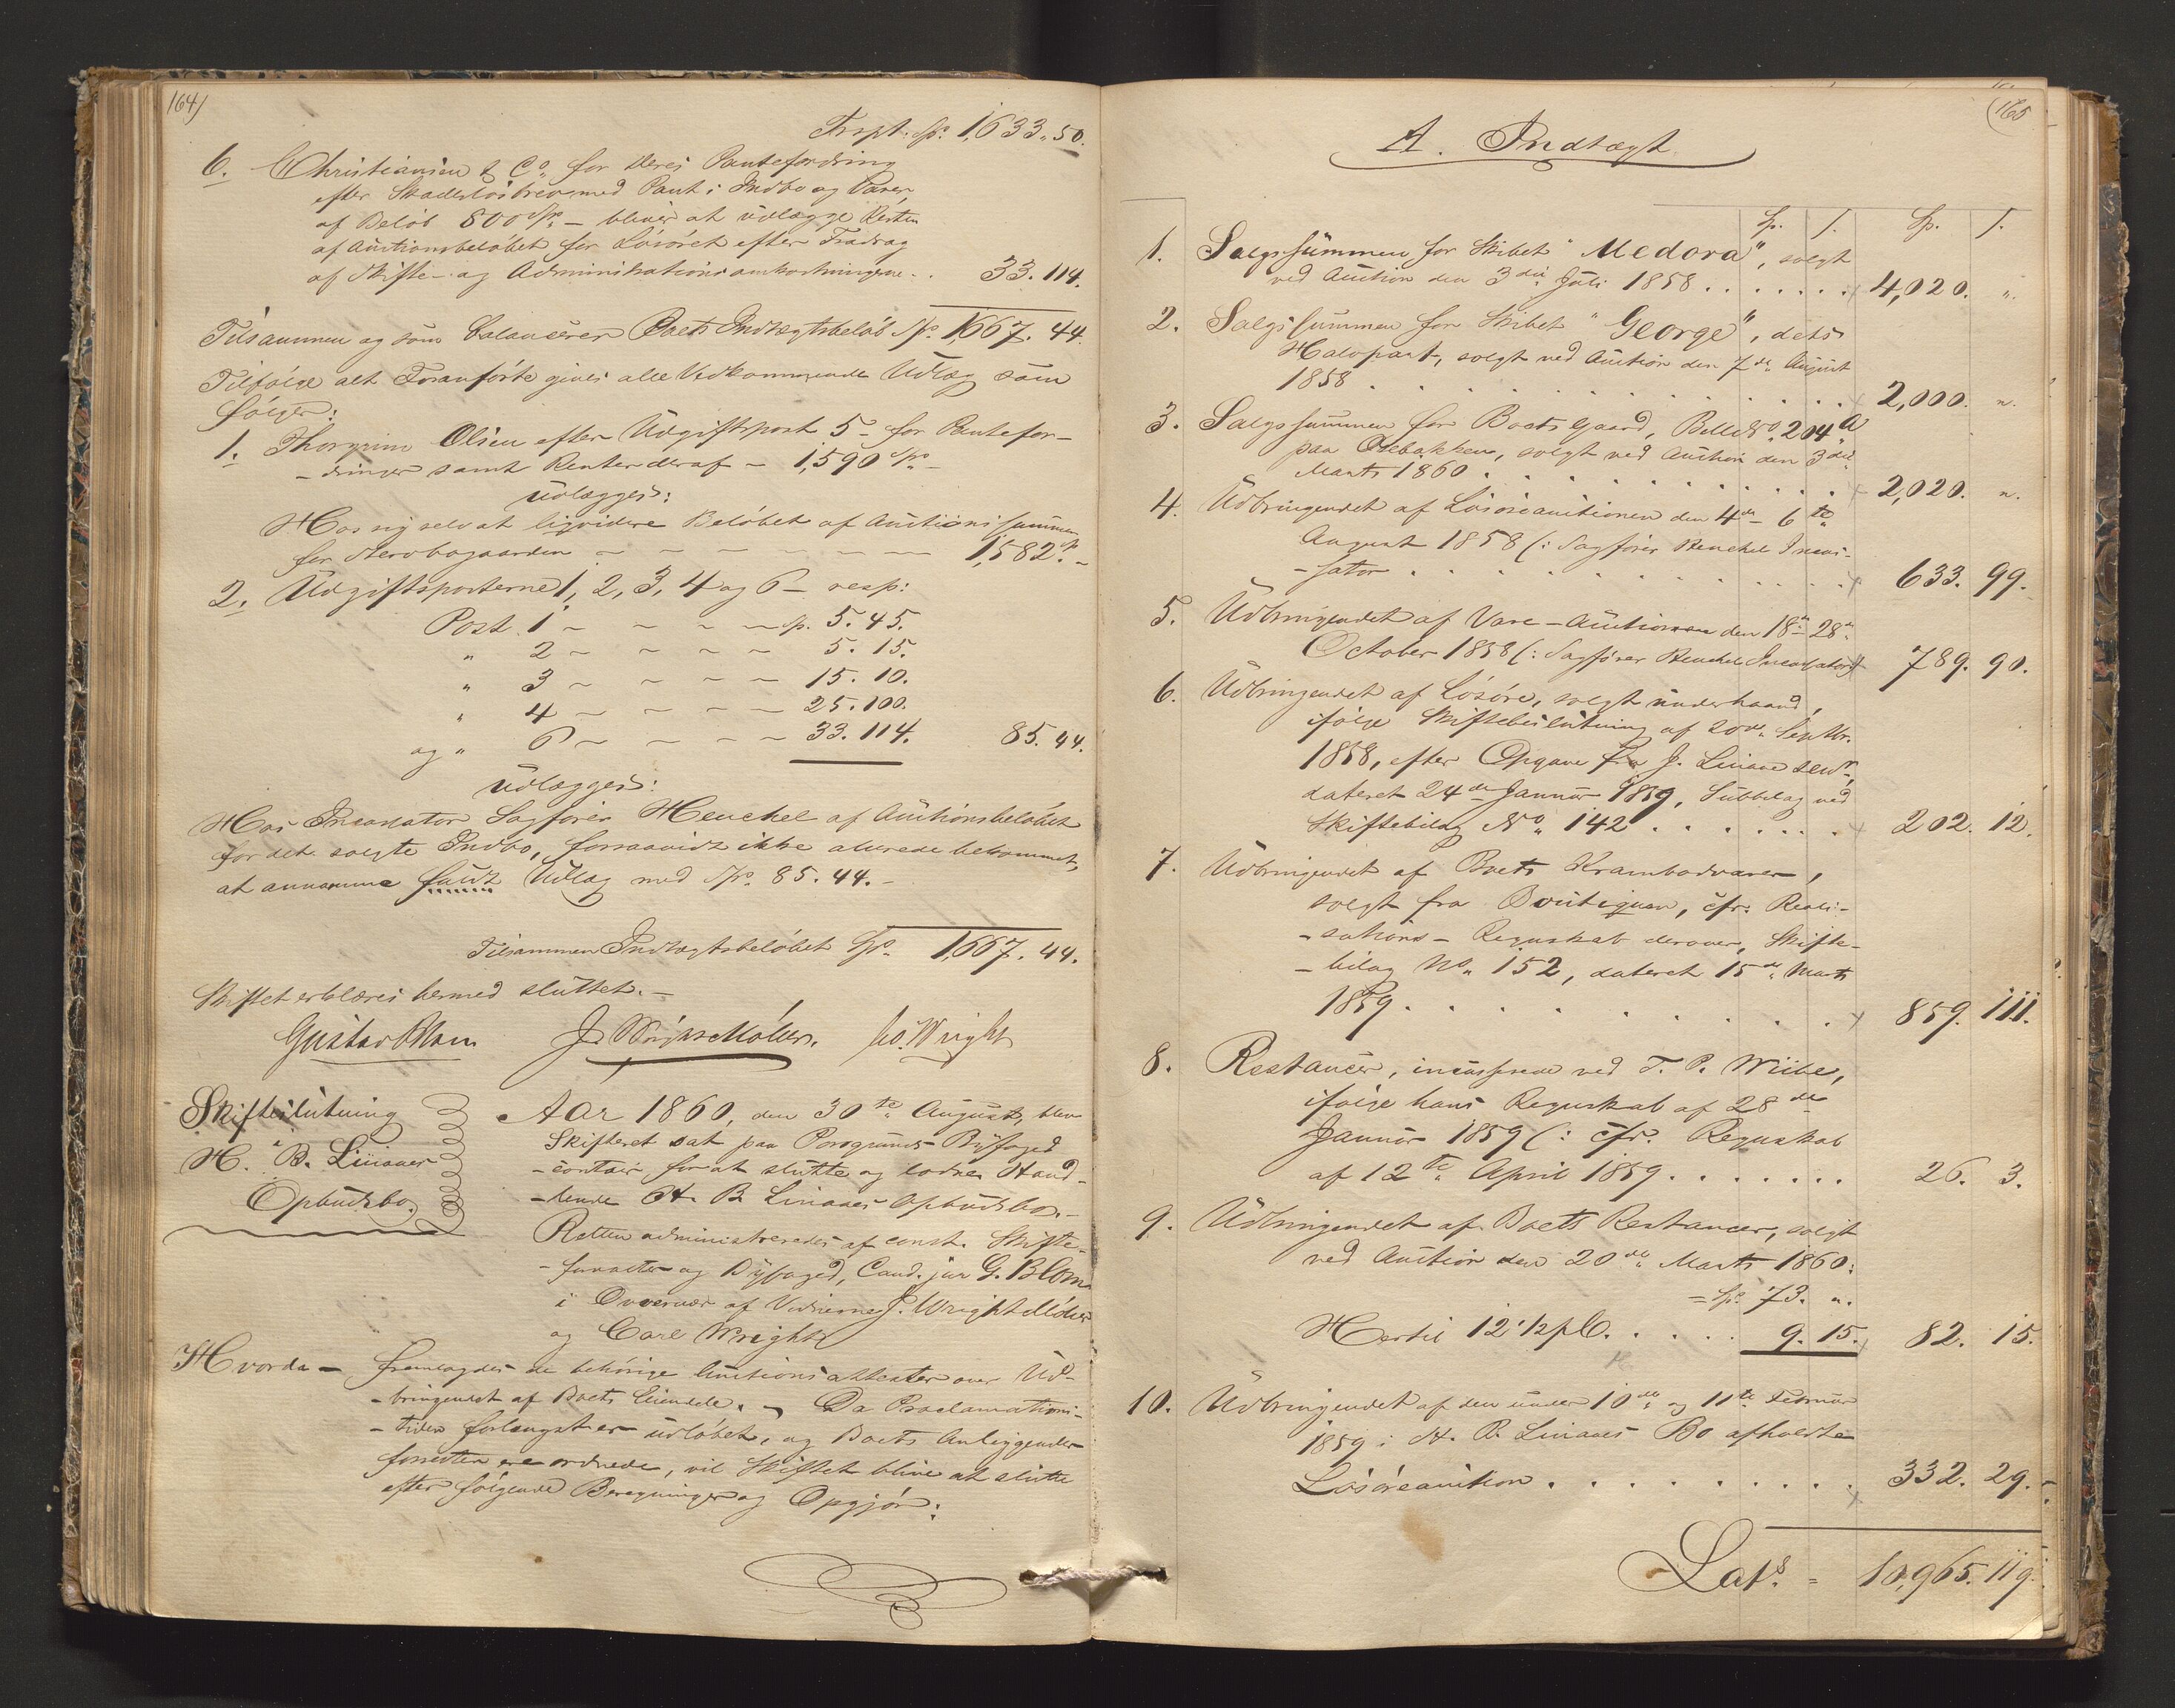 164)
Trspt. Sp. 1,633 " 50.
6. Christiansen & Co. for deres Pantefordring
efter Skadesløsbrev med Pant i Indbo og Varer
af Beløb 800 Sp. – bliver at udlægge Resten
af Auctionsbeløbet for Løsøret efter Fradrag
af Skifte- og Administrationsomkostningerne . . 33. 114.
Tilsammen og som balancerer Boets Indtægtsbeløb Sp. 1,667. 44.
Tilfølge alt Foranførte gives alle Vedkommende Udlæg som
følger:
1. Thorgrim Olsen efter Udgiftspost 5 – for Pantefor-
-dringer samt Renter deraf – 1,590 Sp. –
udlægges:
Hos sig selv at liqvidere Beløbet af Auctionssummen
for Stervbogaarden – – – – – – – 1,582. Sp –
2. Udgiftsposterne 1, 2, 3, 4 og 6 – resp:
Post 1 – – – – Sp. 5. 45.
" 2 – – – – 5. 15.
" 3 – – – – 15. 10.
" 4 – – – – 25. 100.
og " 6 – – – – 33. 114. 85. 44.
udlægges:
Hos Incassator Sagfører Henchel af Auctionsbeløbet
for det solgte Indbo, forsaavidt ikke allerede bekommet,
at annamme fuldt Udlæg med Sp. 85. 44. –
Tilsammen Indtægtsbeløbet Sp. 1,667. 44.
Skiftet erklæres hermed sluttet. –
Gustav Blom J. Wright Møller. C. Wright
Skifteslutning
H. B. Linaaes
Opbudsbo.
Aar 1860, den 30te August, blev
Skifteret sat paa Porsgrunds Byfoged
-contoir for at slutte og lodne Hand-
-lende H. B. Linaaes Opbudsbo. –
Retten administreredes af const. Skifte-
-forvalter og Byfoged, Cand. jur G. Blom
i Overvær af Vidnerne J. Wright Møller
og Carl Wright
Hvorda – fremlagdes de behørige Auctionsattester over Ud-
-bringendet af Boets Eiendele. – Da Proclamations-
-tiden forlængst er udløbet, og Boets Anliggender
forresten ere ordnede, vil Skiftet blive at slutte
efter følgende Beregninger og Opgjør:
(165
A. Indtægt
Sp. s. Sp. s.
1. Salgssummen for Skibet "Medora", solgt
ved Auction den 3die Juli 1858 . . . . . . . 4,020. "
2. Salgssummen for Skibet "George", dets
Halvpart, solgt ved Auction den 7de August
1858 . . . . . . . . . . 2,000. "
3. Salgssummen for Boets Gaard, Bille No. 204 a
paa Osebakken, solgt ved Auction den 3die
Marts 1860 . . . . . . . . . . 2,020. "
4. Udbringendet af Løsøreauctionen den 4de – 6te
August 1858 (: Sagfører Henchel Incas-
-sator . . . . . . . . . . 633. 99.
5. Udbringendet af Vare-Auctionen den 18de – 28de
October 1858 (: Sagfører Henchel Incassator) 789. 90.
6. Udbringendet af Løsøre, solgt underhaand,
ifølge Skiftebeslutning af 20de Septbr.
1858, efter Opgave fra J. Linaae senr.,
dateret 24de Januar 1859, Subbilag ved
Skiftebilag No. 142 . . . . . . . 202. 12.
7. Udbringendet af Boets Krambodvarer,
solgt fra Boutiquen, cfr. Reali-
-sations-Regnskab derover, Skifte-
-bilag No. 152, dateret 15de Marts
1859 . . . . . . . . . . 859. 111.
8. Restancer, incasserede ved T. P. Wiibe,
ifølge hans Regnskab af 28de
Januar 1859 (: cfr. Regnskab
af 12te April 1859 . . . . . . . 26. 3.
9. Udbringendet af Boets Restancer, solgt
ved Auction den 20de Marts 1860:
= Sp. 73. "
Hertil 12½ pC. . . . . . 9. 15. 82. 15.
10. Udbringendet af den under 10de og 11te Februar
1859 i H. B. Linaaes Bo afholdte
Løsøreauction . . . . . . . . . 332. 29.
Lats. = 10,965. 119.